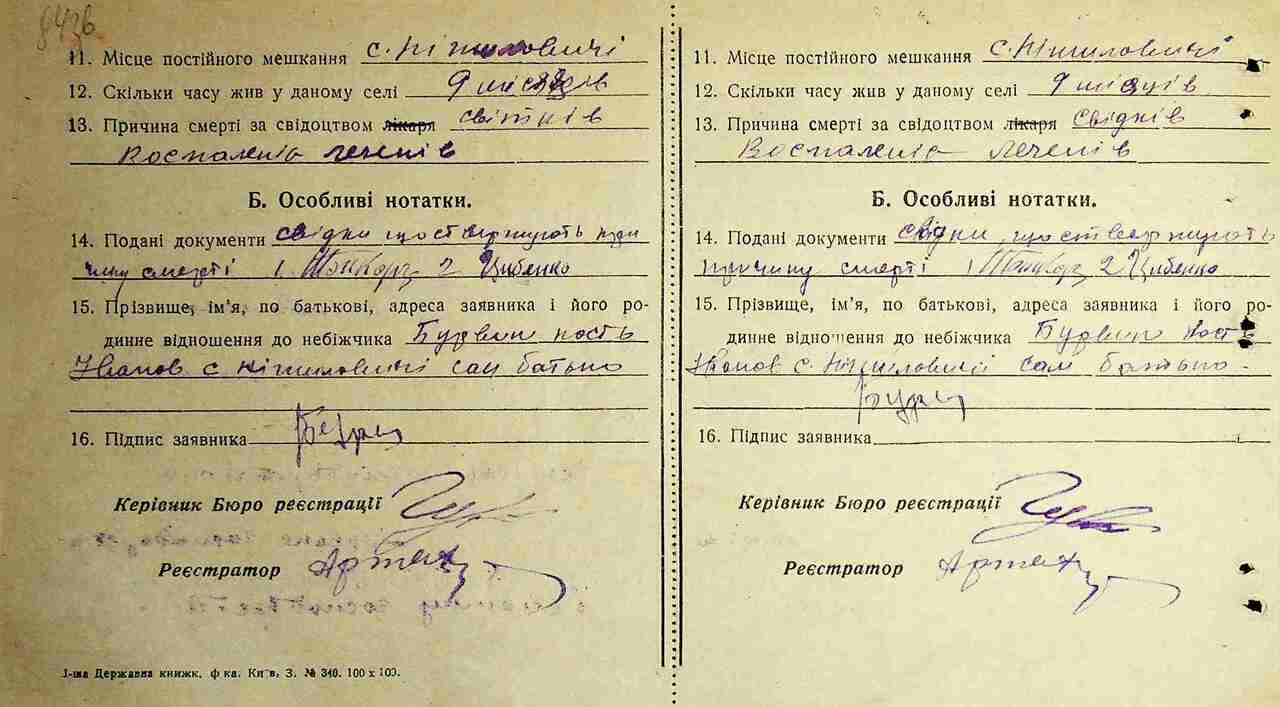 8436
11. Місце постійного мешкання с. Ніжиловичі
12. Скільки часу жив у даному селі 9 місяців
13. Причина смерті за свідоцтвом лікаря світків
Воспаленіа легенів
Б. Особливі нотатки.
14. Подані документи свідки що ствержують при
чину смерті 1 2 Цибенко
15. Прізвище, ім’я, по батькові, адреса заявника і його ро-
динне відношення до небіжчика Кость
Іванов с Ніжиловичі сам батько
16. Підпис заявника
Керівник Бюро реєстрації
Реєстратор
1-ша Державна книжк. ф-ка. Київ. З. № 340. 100 x 100.
11. Місце постійного мешкання с. Ніжиловичі
12. Скільки часу жив у даному селі 9 місяців
13. Причина смерті за свідоцтвом лікаря свідків
Воспаленіа легенів
Б. Особливі нотатки.
14. Подані документи свідки що ствержують
причину смерті 1 2 Цибенко
15. Прізвище, ім’я, по батькові, адреса заявника і його ро-
динне відношення до небіжчика Кость
Іванов с. Ніжиловичі сам батько.
16. Підпис заявника
Керівник Бюро реєстрації
Реєстратор